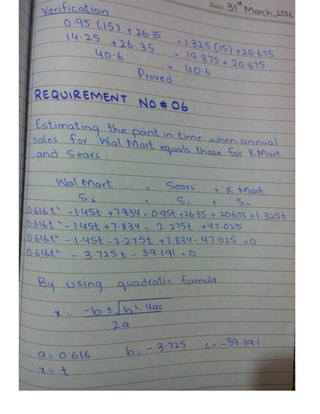 Date: 31st March, 2016
Verification
0.95 (15) + 26.35 = 1.325 (15) + 20.675
14.25 + 26.35 = 19.875 + 20.675
40.6 = 40.6
Proved
REQUIREMENT NO # 06
Estimating the point in time when annual
sales for Wal Mart equals those for K Mart
and Sears
Wal Mart = Sears + K Mart
S₁ = S₂ + S₃
0.616t² - 1.45t + 7.834 = 0.95t + 26.35 + 20.675 + 1.325t
0.616t² - 1.45t + 7.834 = 2.275t + 47.025
0.616t² - 1.45t - 2.275t + 7.834 - 47.025 = 0
0.616t² - 3.725t - 39.191 = 0
By using quadratic formula
x = -b ± √b² - 4ac
2a
a = 0.616 b = -3.725 c = -39.191
x = t